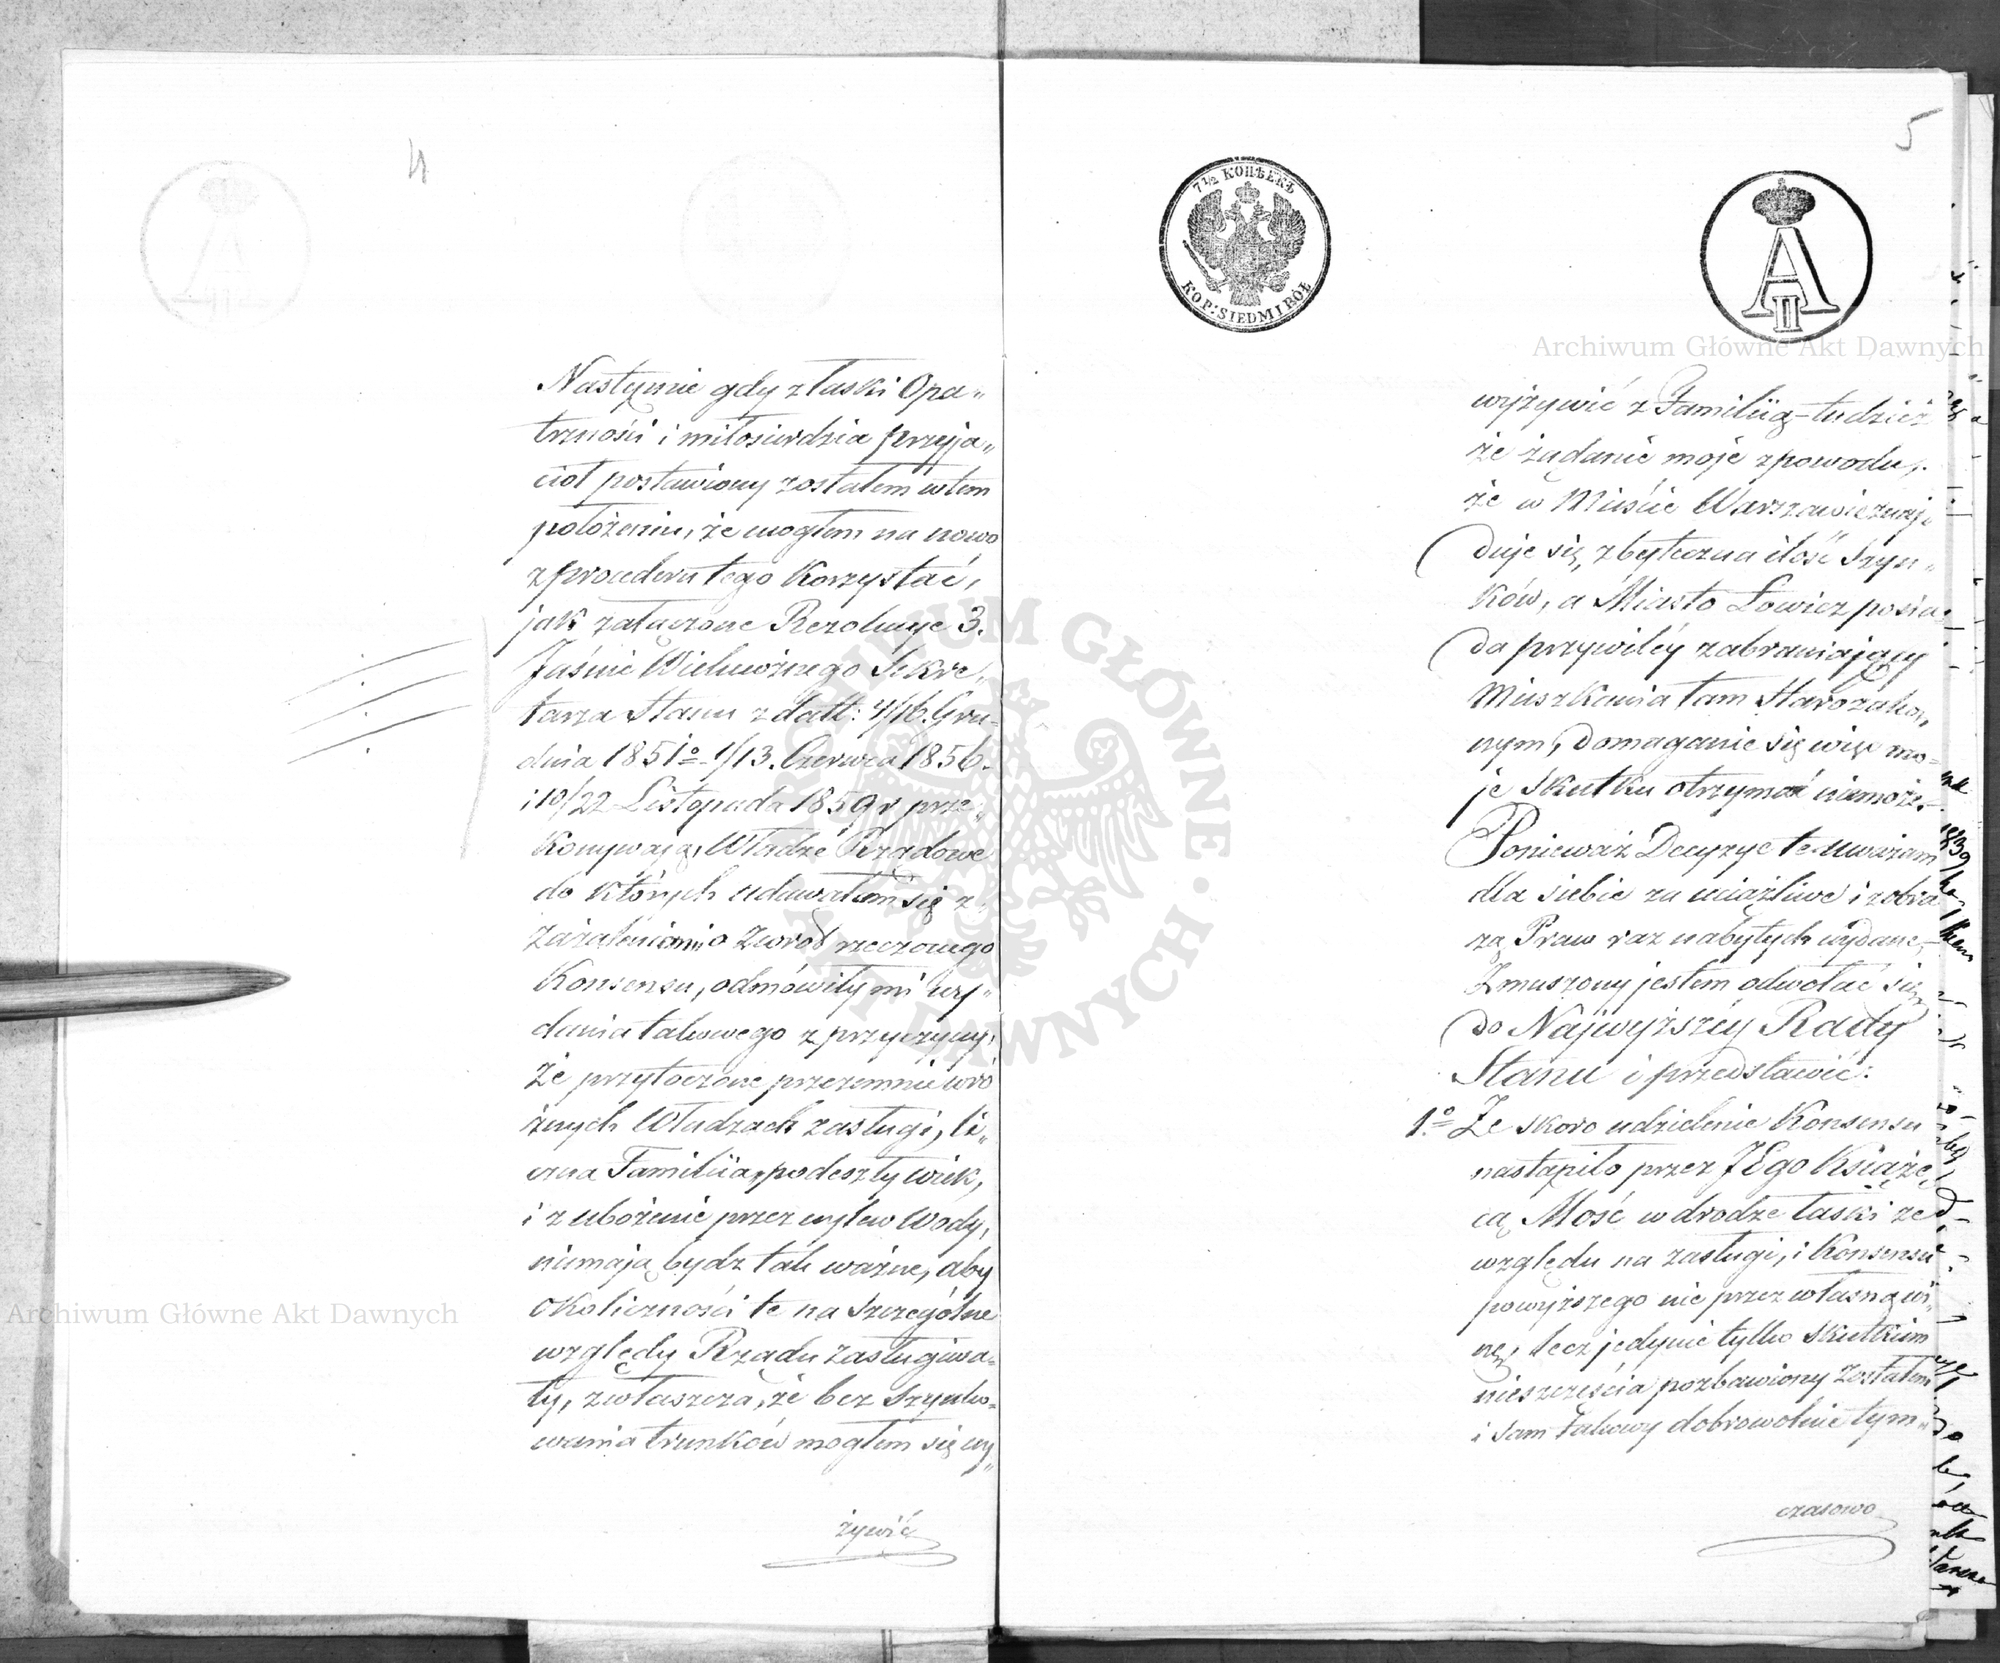 4
Następnie gdy z łaski Opa„
trzności i miłosierdzia przyja„
ciół postawiony zostałem w tem
położeniu, że mogłem na nowo
z procederu tego Korzystać,
jak załączone Rezolucye 3.
Jaśnie Wielmożnego Sekre„
tarza Stanu z datt: 4/16. Gru„
dnia 1851º 1/13. Czerwca 1856.
i 10/22 Listopada 1859 r prze„
konywają, Władze Rządowe
do których udawałem się z
zażaleniami o zwrot rzeczonego
Konsensu, odmówiły mi wy„
dania takowego z przyczyny,
Że przytoczone przezemnie w ró
żnych Władzach zasługi, li„
czna Familiia, podeszły wiek,
i zubożenie przez wylew Wody,
niemają bydz tak ważne, aby
okoliczności te na szczególne
względy Rządu zasługiwa„
ły, zwłaszcza, że bez Szynko„
wania trunków mogłem się wy„
żywić
5
7½ КОПѢЕКЪ
KOP: SIEDM I PÓŁ
A II
wyżywić z Familiią – tudzież
że żądanie moje z powodu,
że w Mieście Warszawie znaj„
duje się zbyteczna ilość Szyn„
ków, a Miasto Łowicz posia„
da przywiléy zabraniający
Mieszkania tam Starozakon„
nym, domaganie się więc mo„
je skutku otrzymać niemoże.
Ponieważ Decyzye te uważam
dla siebie za uciążliwe i z obra
zą Praw raz nabytych wydane,
Zmuszony jestem odwołać się
do Najwyższéy Rady
Stanu i przedstawić:
1.º Że skoro udzielenie Konsensu
nastąpiło przez JEgo Książę„
cą Mość w drodze łaski ze
względu na zasługi, i Konsensu
powyższego nie przez własną wi„
nę, lecz jedynie tylko skutkiem
nieszczęścia pozbawiony zostałem
i sam takowy dobrowolnie tym„
czasowo
Archiwum Główne Akt Dawnych
Archiwum Główne Akt Dawnych
ARCHIWUM GŁÓWNE AKT DAWNYCH